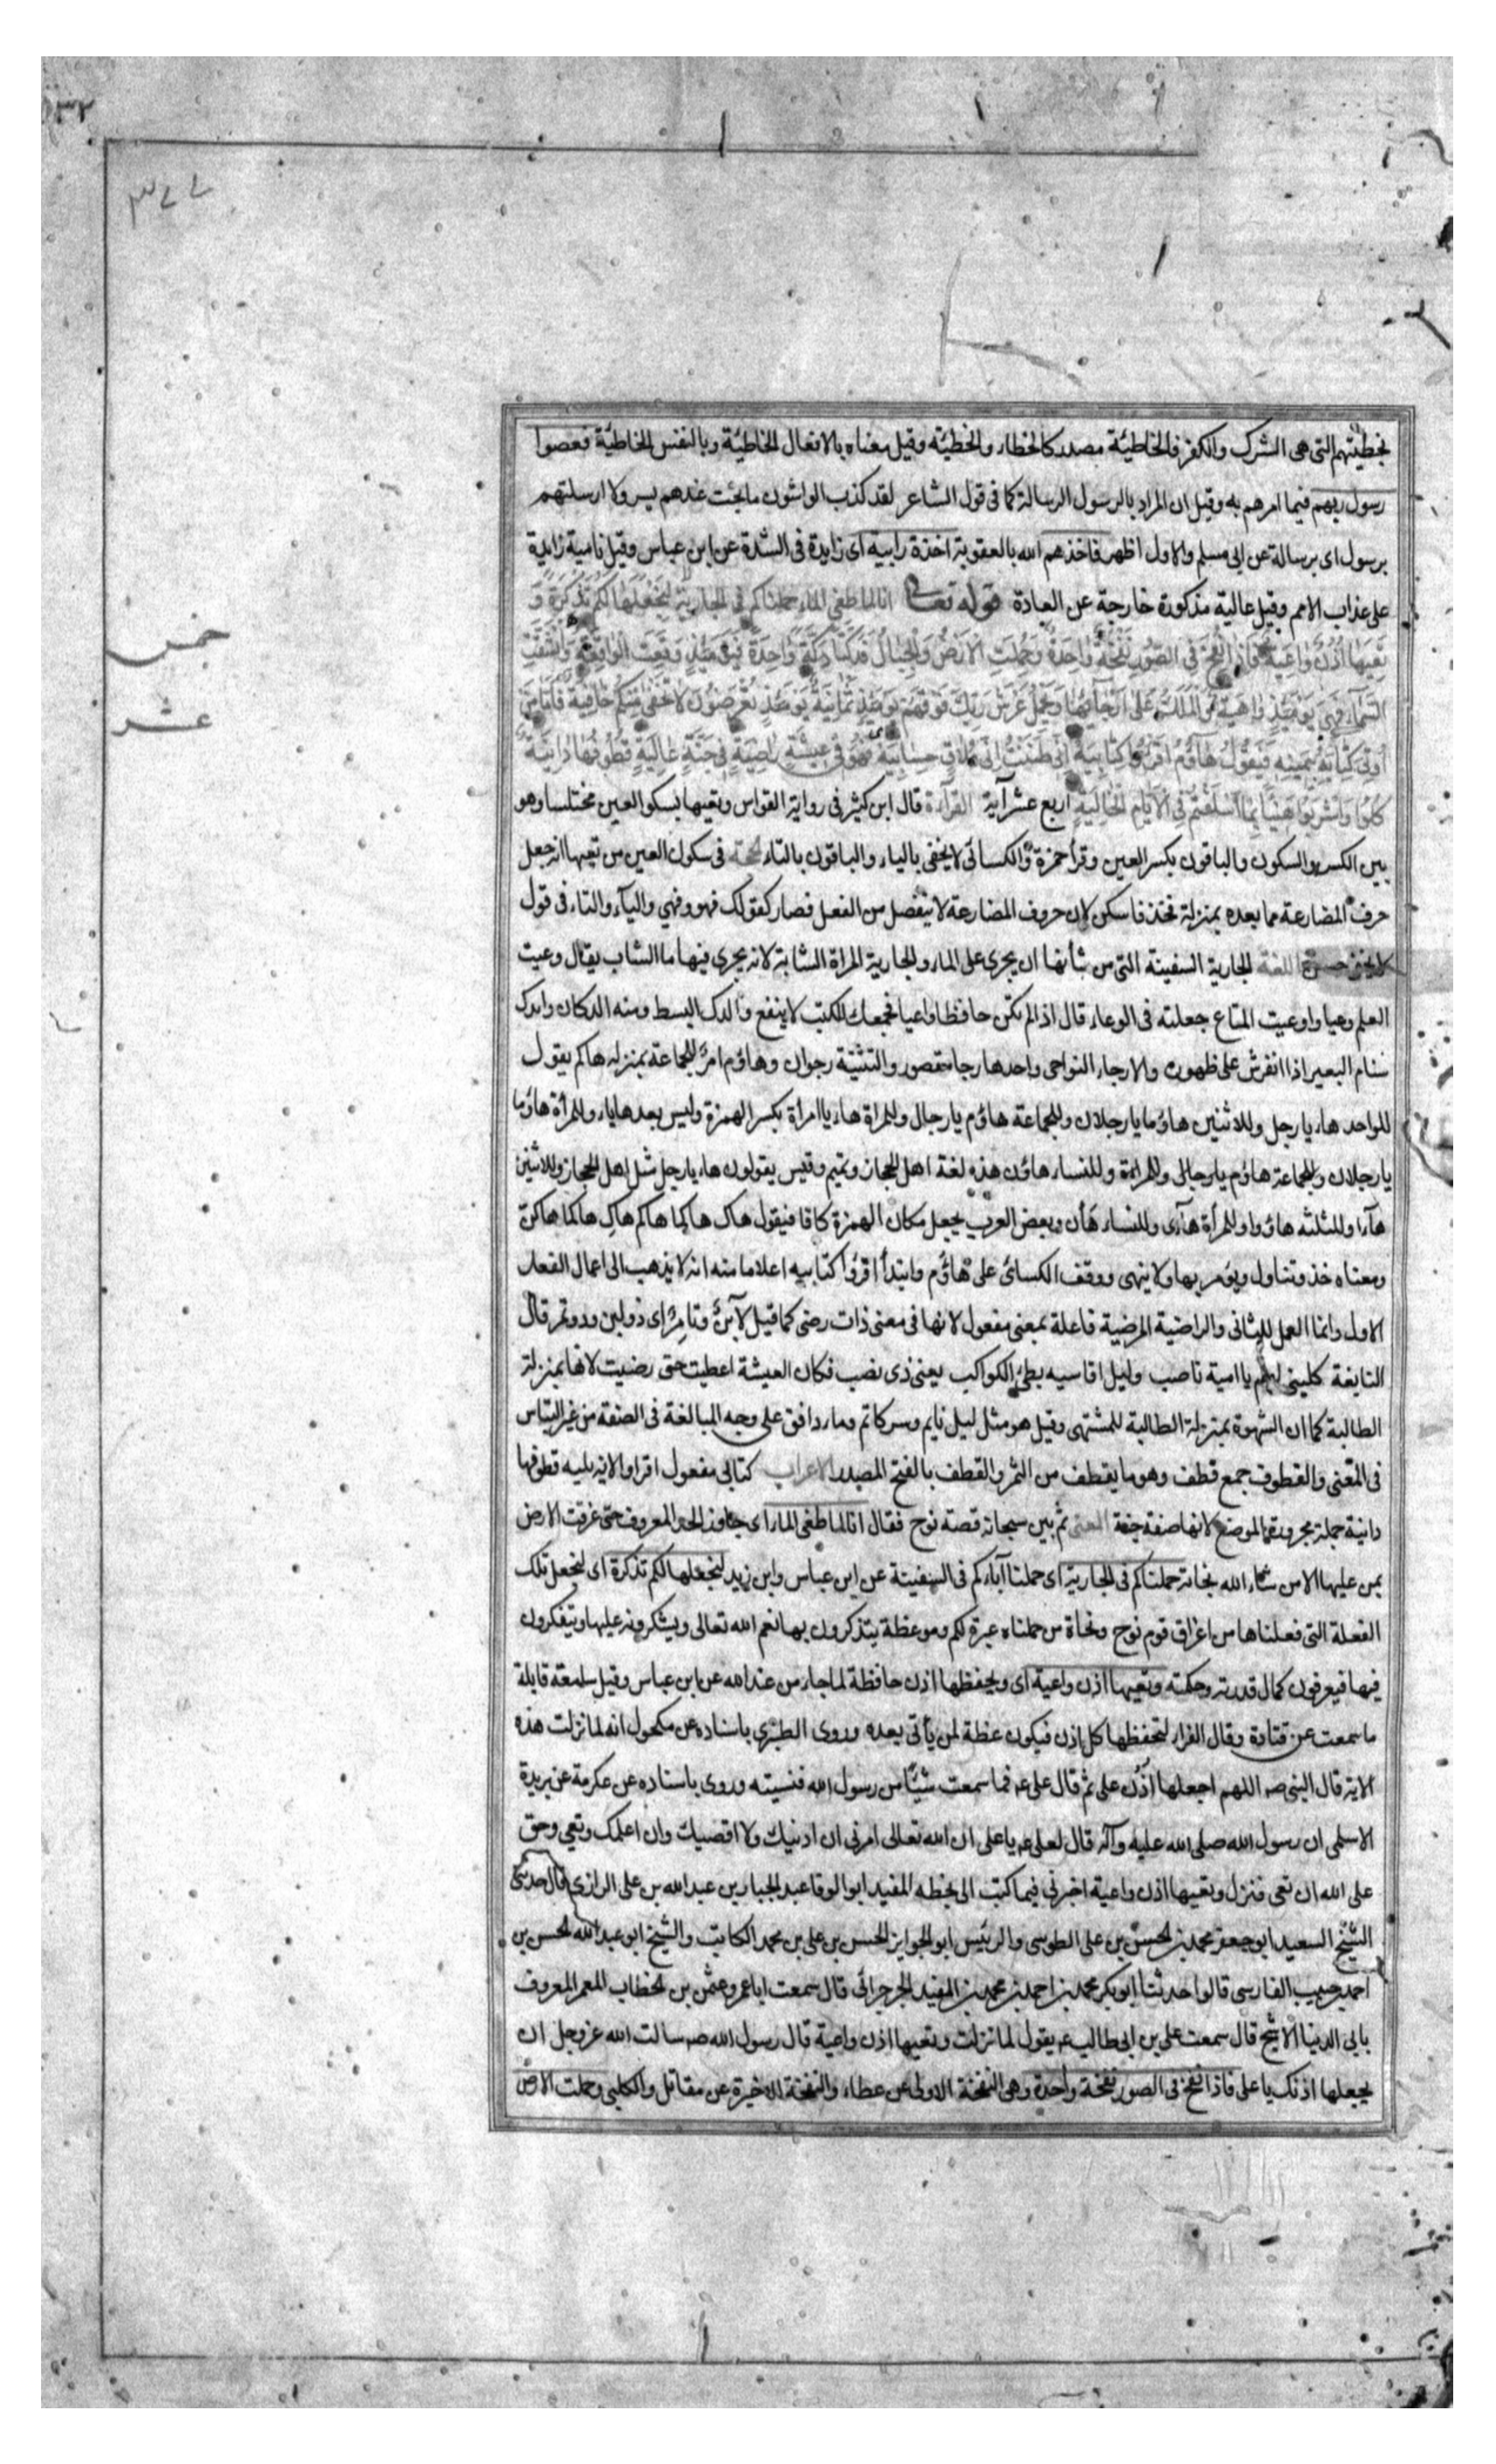 ٣٧٧
بخطيئتهم التى هى الشرك والكفر فالخاطيئة مصدر كالخطاء والخطيئة وقيل معناه بالافعال الخاطيئة وبالنفس الخاطيئة فعصوا
رسول ربهم فيما امرهم به وقيل ان المراد بالرسول الرسالة كما فى قول الشاعر لقد كذب الواشون ما بحت عندهم بسر ولا ارسلتهم
برسول اى برسالة عن ابى مسلم والاول اظهر فاخذهم الله بالعقوبة اخذة رابية اى زايدة فى الشدة عن ابن عباس وقيل نامية زايدة
على عذاب الامم وقيل عالية مذكورة خارجة عن العادة قوله تعالى انا لما طغى الماء حملناكم فى الجارية لنجعلها لكم تذكرة و
تعيها اذن واعية فاذا نفخ فى الصور نفخة واحدة وحملت الارض والجبال فدكتا دكة واحدة فيومئذ وقعت الواقعة وانشقت
السماء فهى يومئذ واهية والملك على ارجائها ويحمل عرش ربك فوقهم يومئذ ثمانية يومئذ تعرضون لا تخفى منكم خافية فاما من
اوتى كتابه بيمينه فيقول هاؤم اقرؤا كتابيه انى ظننت انى ملاق حسابيه فهو فى عيشة راضية فى جنة عالية قطوفها دانية
كلوا واشربوا هنيئا بما اسلفتم فى الايام الخالية اربع عشر آية القرآءة قال ابن كثير فى رواية القواس وتعيها بسكوا العين مختلسا وهو
بين الكسر والسكون والباقون بكسر العين وقرأ حمزة والكسائى لا يخفى بالياء والباقون بالتاء الحجة فى سكون العين من تعيها انه جعل
حرف المضارعة مما بعده بمنزلة فخذ فاسكن لان حروف المضارعة لا ينفصل من الفعل فصار كقولك فهو وفهي والياء والتاء فى قول
لا يخفى حسن اللغة الجارية السفينة التى من شأنها ان يجرى على الماء والجارية المراة الشابة لانه يجرى فيها ماالشباب يقال وعيت
العلم وعيا واوعيت المتاع جعلته فى الوعاء قال اذا لم تكن حافظا واعيا فجمعك للكتب لا ينفع والدك البسط ومنه الدكان واندك
سنام البعير اذا انفرش على ظهره والارجاء النواحى واحدها رجا مقصور والتثنية رجوان وهاؤم امر للجماعة بمنزلة هاكم يقول
للواحد هاء يا رجل وللاثنين هاؤما يا رجلان وللجماعة هاؤم يا رجال وللمراة هاء يا امراة بكسر الهمزة وليس بعدها ياء وللمرأة هاؤما
يا رجلان وللجماعة هاؤم يا رجالى وللمراة وللنساء هاؤن هذه لغة اهل الحجاز وتميم وقيس يقولون هاء يا رجل مثل اهل الحجاز وللاثنين
هاءا وللثلثه هاؤوا وللمرأة هآءى وللنساء هأن وبعض العرب يجعل مكان الهمزة كافا فيقول هاك هاكما هاكم هاك هاكما هاكن
ومعناه خذ وتناول ويؤمر بها ولا ينهى ووقف الكسائى على هاؤم وابتدأ اقرؤا كتابيه اعلاما منه انه لا يذهب الى اعمال الفعل
الاول وانما العمل للثانى والراضية المرضية فاعلة بمعنى مفعول لانها فى معنى ذات رضى كما قيل لابن وتامر اى ذو لبن وذو تمر قال
النابغة كلينى لهم يا اميمة ناصب وليل اقاسيه بطئ الكواكب يعنى ذى نصب فكان العيشة اعطيت حتى رضيت لانها بمنزلة
الطالبة كما ان الشهوة بمنزلة الطالبة للمشتهى وقيل هو مثل ليل نايم وسر كاتم وماء دافق على وجه المبالغة فى الصفة من غير التباس
فى المعنى والقطوف جمع قطف وهو ما يقطف من الثمر والقطف بالفتح المصدر الاعراب كتابى مفعول اقراوا لانه يليه قطوفها
دانية جملة مجرورة الموضع لانها صفة جنة المعنى ثم بين سبحانه قصة نوح فقال انا لما طغى الماء اى جاوز الحد المعروف حتى غرقت الارض
بمن عليها الا من شاء الله نجاته حملناكم فى الجارية اى حملنا آباءكم فى السفينة عن ابن عباس وابن زيد لنجعلها لكم تذكرة اى لنجعل تلك
الفعلة التى فعلناها من اغراق قوم نوح ونجاة من حملناه عبرة لكم وموعظة يتذكرون بها نعم الله تعالى ويشكرونه عليها ويتفكرون
فيها فيعرفون كمال قدرته وحكمته وتعيها اذن واعية اى ويحفظها اذن حافظة لما جاء من عند الله عن ابن عباس وقيل سامعة قابلة
ما سمعت عن قتادة وقال الفراء لتحفظها كل اذن فيكون عظة لمن يأتى بعده وروى الطبرى باسناده عن مكحول انه لما نزلت هذه
الاية قال النبى صه اللهم اجعلها اذن على ثم قال على عه فما سمعت شيئا من رسول الله فنسيته وروى باسناده عن عكرمة عن بريدة
الاسلمى ان رسول الله صلى الله عليه وآله قال لعلى عه يا على ان الله تعالى امرنى ان ادنيك ولا اقصيك وان اعلمك وتعي وحق
على الله ان تعى فنزل وتعيها اذن واعية اخبرنى فيما كتب الى بخطه المفيد ابو الوفا عبد الجبار بن عبد الله بن على الرازى قال حدثنى
الشيخ السعيد ابو جعفر محمد بن الحسن بن على الطوسى والرئيس ابو الجوايز الحسن بن على بن محمد الكاتب والشيخ ابو عبد الله الحسن بن
احمد بن حبيب الفارسى قالوا حدثنا ابو بكر محمد بن احمد بن محمد بن المفيد الجرجرائى قال سمعت ابا عمرو عثمن بن الخطاب المعمر المعروف
بابى الدنيا الاشج قال سمعت على بن ابى طالب عه يقول لما نزلت وتعيها اذن واعية قال رسول الله صه سالت الله عز وجل ان
يجعلها اذنك يا على فاذا نفخ فى الصور نفخة واحدة وهى النفخة الاولى عن عطاء والنفخة الاخيرة عن مقاتل والكلبى وحملت الارض
خمس
عشر